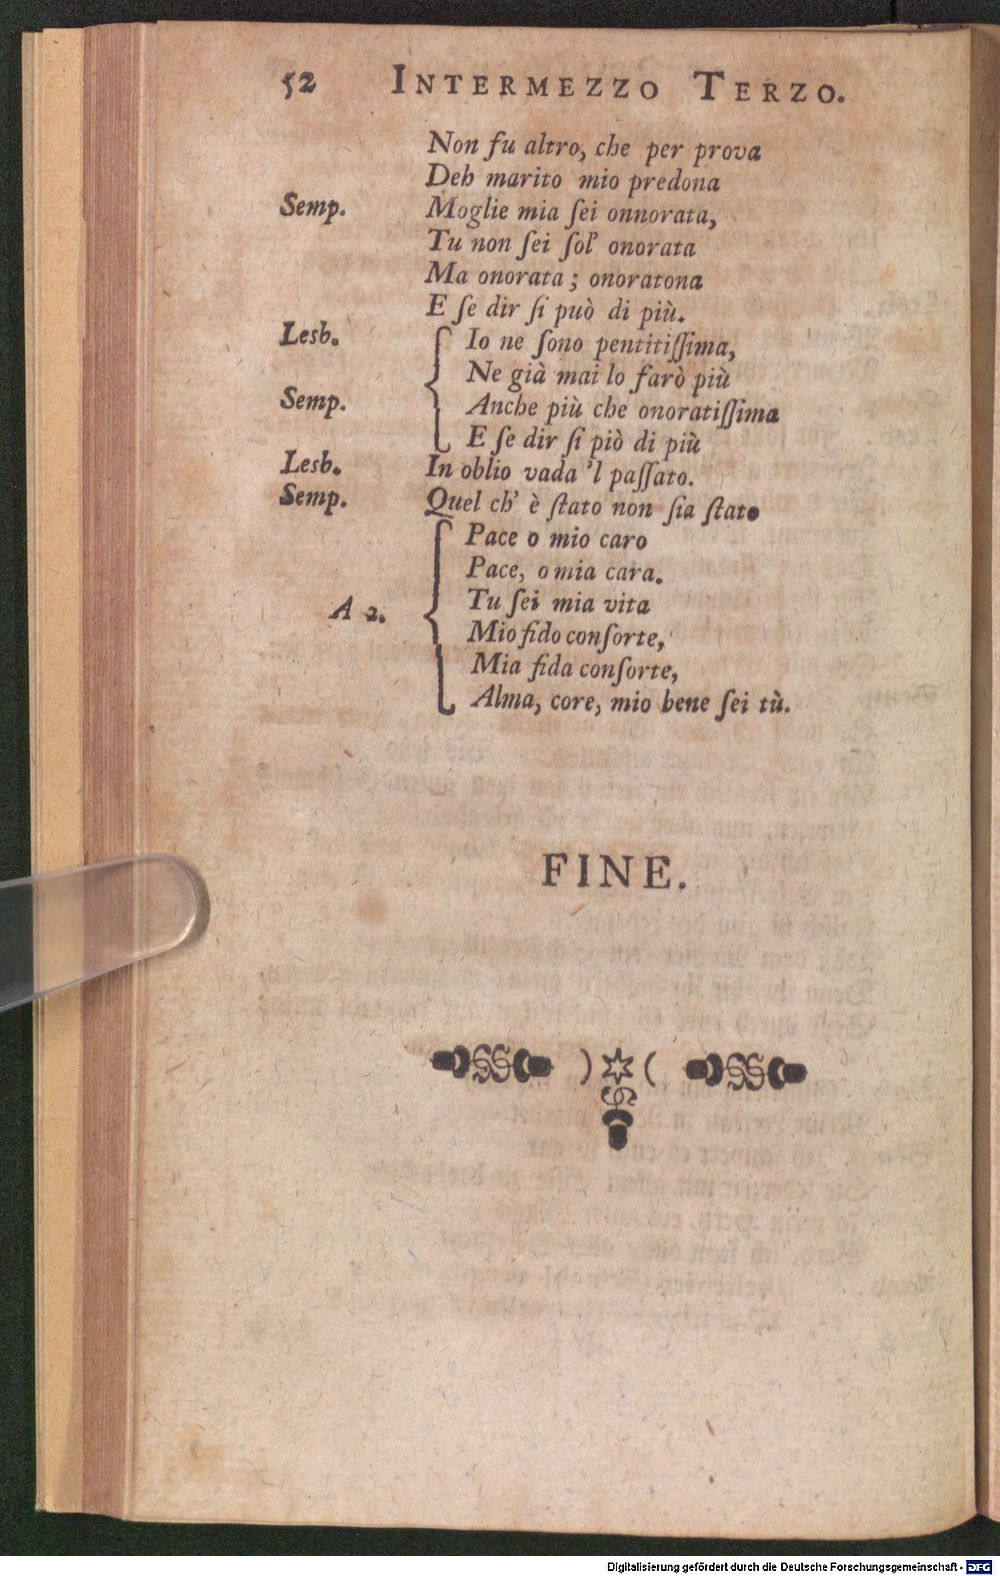 52 INTERMEZZO TERZO.
Non fu altro, che per prova
Deh marito mio predona
Semp. Moglie mia ſei onnorata,
Tu non ſei ſol' onorata
Ma onorata; onoratona
E ſe dir ſi può di più.
Lesb. Io ne ſono pentitiſſima,
Ne già mai lo farò più
Semp. Anche più che onoratiſſima
E ſe dir ſi piò di più
Lesb. In oblio vada 'l paſſato.
Semp. Quel ch' è ſtato non ſia ſtato
Pace o mio caro
Pace, o mia cara.
A 2. Tu ſei mia vita
Mio fido conſorte,
Mia fida conſorte,
Alma, core, mio bene ſei tù.
FINE.
Digitalisierung gefördert durch die Deutsche Forschungsgemeinschaft - DFG